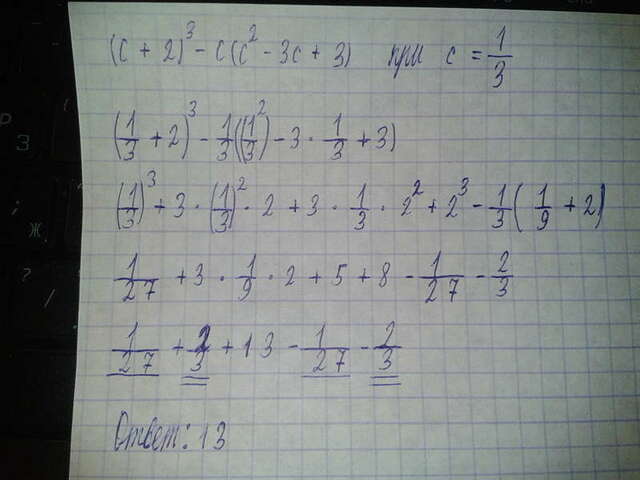 (c + 2)³ - c(c² - 3c + 3) при c = 1/3
(1/3 + 2)³ - 1/3((1/3)² - 3 · 1/3 + 3)
(1/3)³ + 3 · (1/3)² · 2 + 3 · 1/3 · 2² + 2³ - 1/3(1/9 + 2)
1/27 + 3 · 1/9 · 2 + 5 + 8 - 1/27 - 2/3
1/27 + 2/3 + 13 - 1/27 - 2/3
Ответ: 13
Р
З
;
Ж
?
/